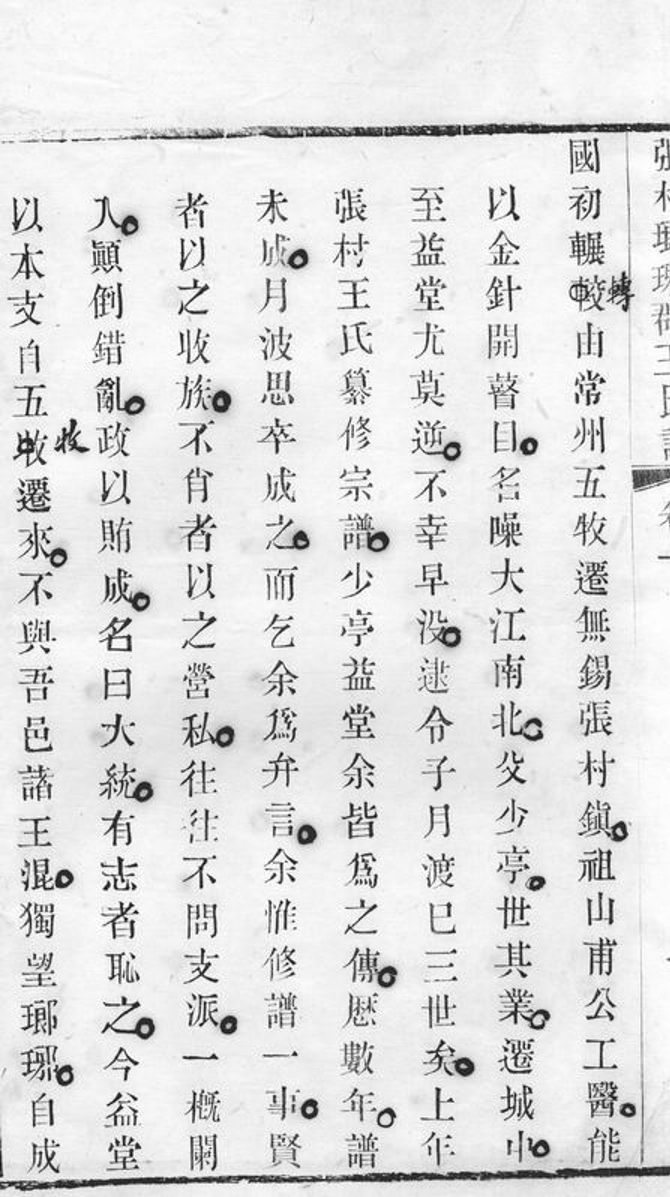 張村瑯琊郡王氏譜 卷一
國初輾較轉由常州五牧遷無錫張村鎭祖山甫公工醫能
以金針開瞽目名噪大江南北父少亭世其業遷城中
至益堂尤莫逆不幸早没逮令子月渡巳三世矣上年
張村王氏纂修宗譜少亭益堂余皆爲之傳歷數年譜
未成月波思卒成之而乞余爲弁言余惟修譜一事賢
者以之收族不肖者以之營私往往不問支派一槪闌
入顚倒錯亂政以賄成名曰大統有志者恥之今益堂
以本支自五牧遷來不與吾邑諸王混獨望瑯琊自成